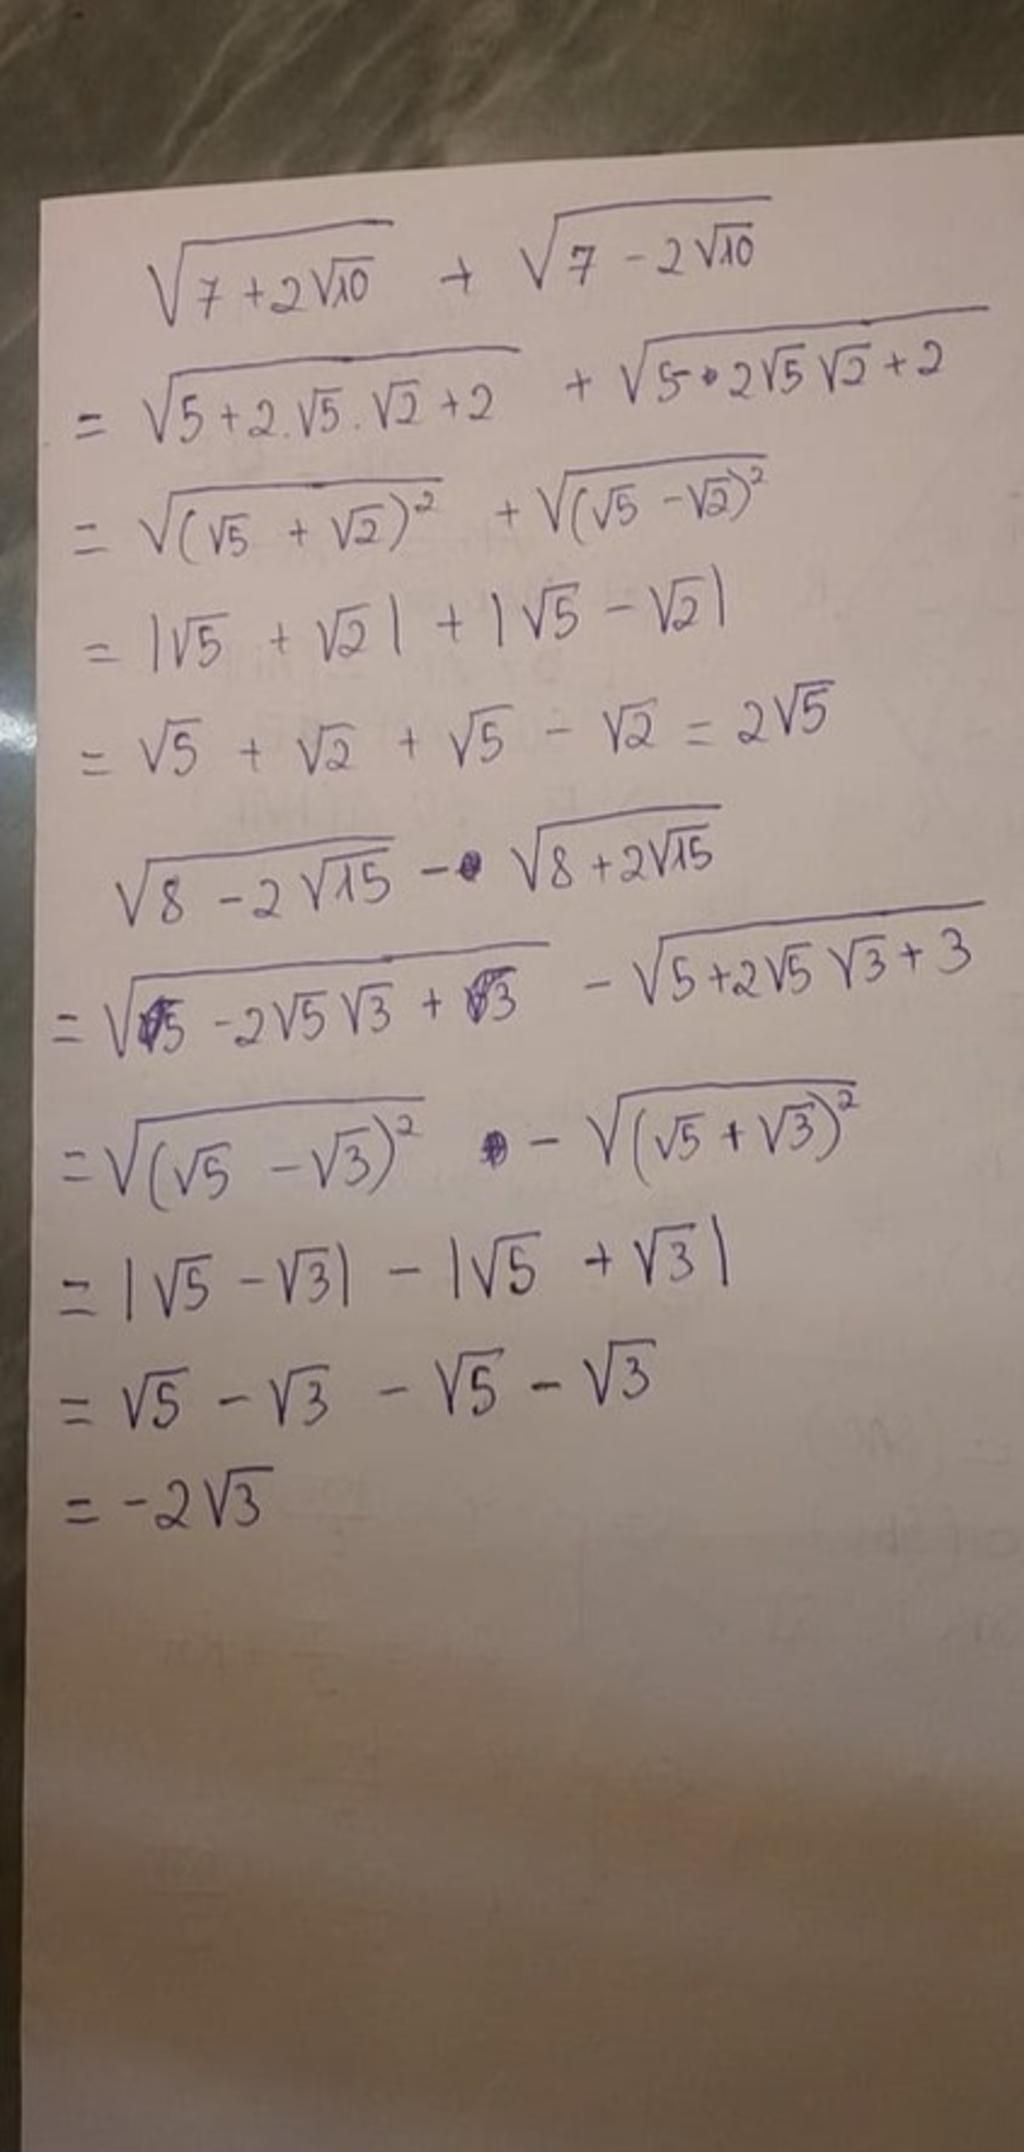 √(7 + 2√10) + √(7 - 2√10)
= √(5 + 2.√5.√2 + 2) + √(5 - 2√5√2 + 2)
= √((√5 + √2)²) + √((√5 - √2)²)
= |√5 + √2| + |√5 - √2|
= √5 + √2 + √5 - √2 = 2√5
√(8 - 2√15) - √(8 + 2√15)
= √(5 - 2√5√3 + 3) - √(5 + 2√5√3 + 3)
= √((√5 - √3)²) - √((√5 + √3)²)
= |√5 - √3| - |√5 + √3|
= √5 - √3 - √5 - √3
= -2√3